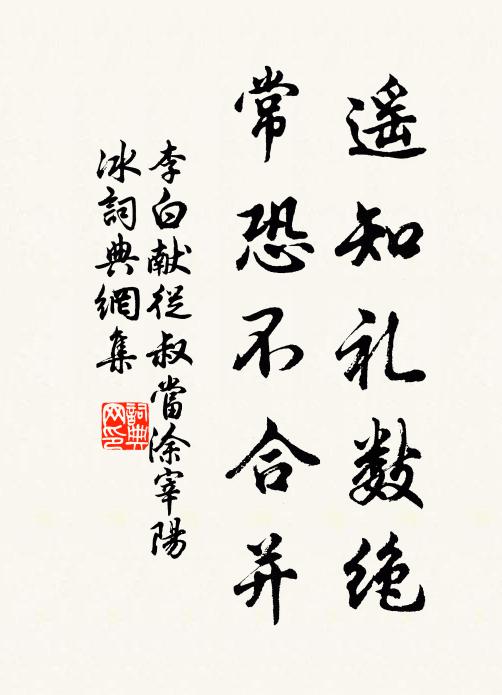 遥知礼数绝
常恐不合并
李白献從叔當涂宰陽
冰詞典網集
詞典网印